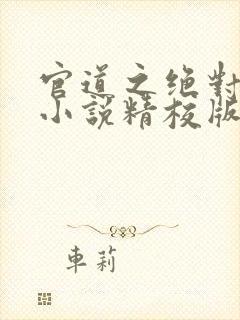 官道之绝對
小說精校版
車莉